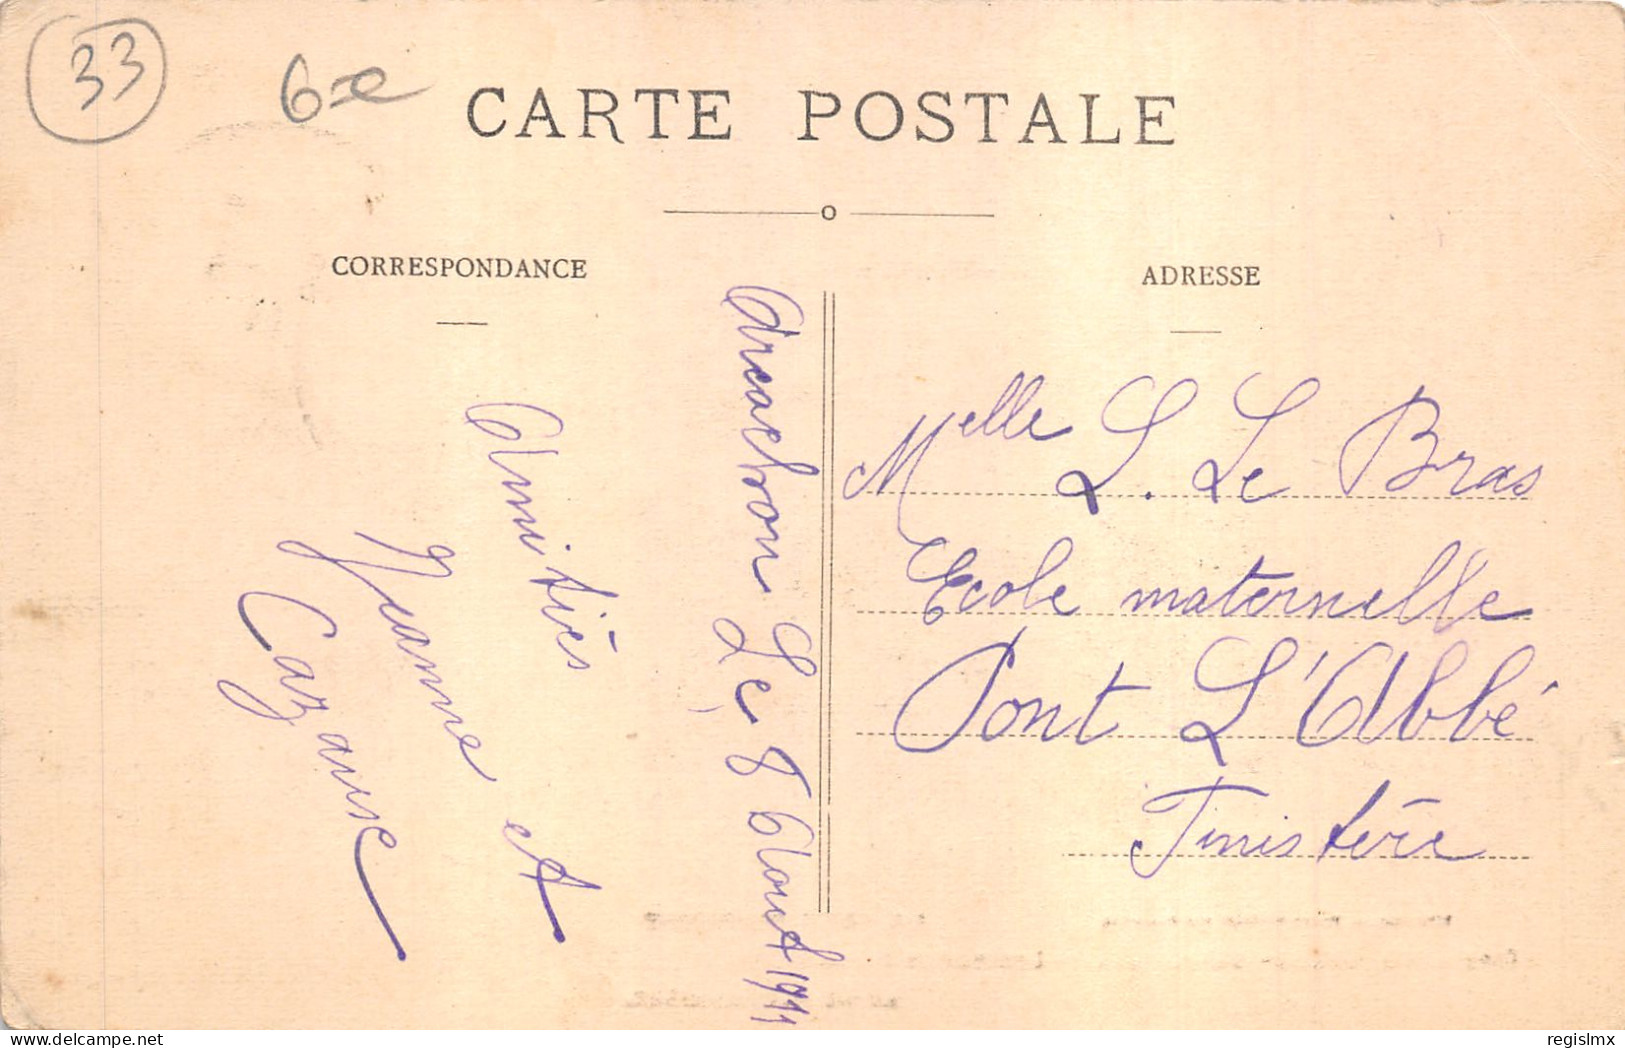 33
6
CARTE POSTALE
CORRESPONDANCE
ADRESSE
Arcachon Le 8 Aout 1911
Amitiés
Jeanne et
Melle L. Le Bras
Ecole maternelle
Pont L'Abbé
Finistère
delcampe.net
regislmx